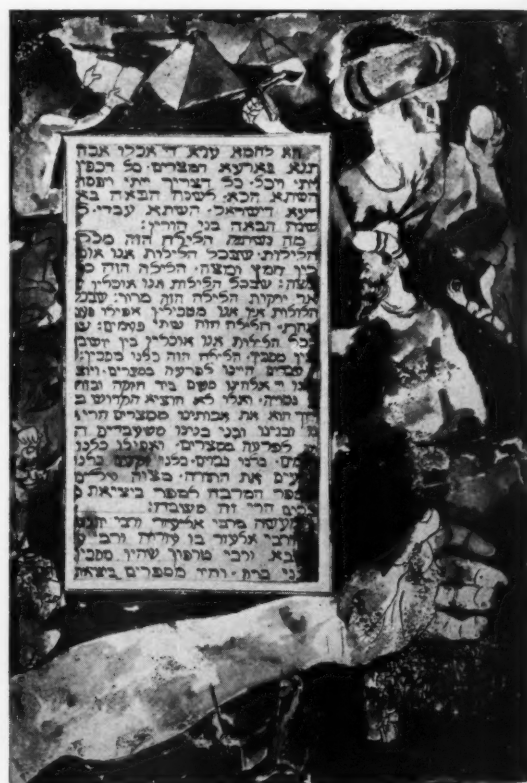 הא לחמא עניא די אכלו אבה
תנא בארעא דמצרים. כל דכפין
ייתי ויכל. כל דצריך ייתי ויפסח
השתא הכא. לשנה הבאה בא
רעא דישראל. השתא עבדי. ל
שנה הבאה בני חורין:
מה נשתנה הלילה הזה מכל
הלילות. שבכל הלילות אנו אוכ
לין חמץ ומצה. הלילה הזה כל
מצה: שבכל הלילות אנו אוכלין ש
אר ירקות הלילה הזה מרור: שבכל
הלילות אין אנו מטבילין אפילו פעם
אחת. הלילה הזה שתי פעמים: ש
בכל הלילות אנו אוכלין בין יושב
בין מסבין. הלילה הזה כלנו מסבין:
עבדים היינו לפרעה במצרים. ויוצ
אנו יי אלהינו משם ביד חזקה ובזר
נטויה. ואלו לא הוציא הקדוש ב
רוך הוא את אבותינו ממצרים הרי
ובנינו ובני בנינו משעבדים ה
לפרעה במצרים. ואפילו כלנו
כלנו נבונים. כלנו זקנים כלנו
את התורה. מצוה עלינו
לספר המרבה לספר ביציאת מ
צרים הרי זה משובח:
מעשה ברבי אליעזר ורבי
ורבי אלעזר בן עזריה ורבי ע
קיבא. ורבי טרפון שהיו מסבין
בבני ברק. והיו מספרים ביציאת